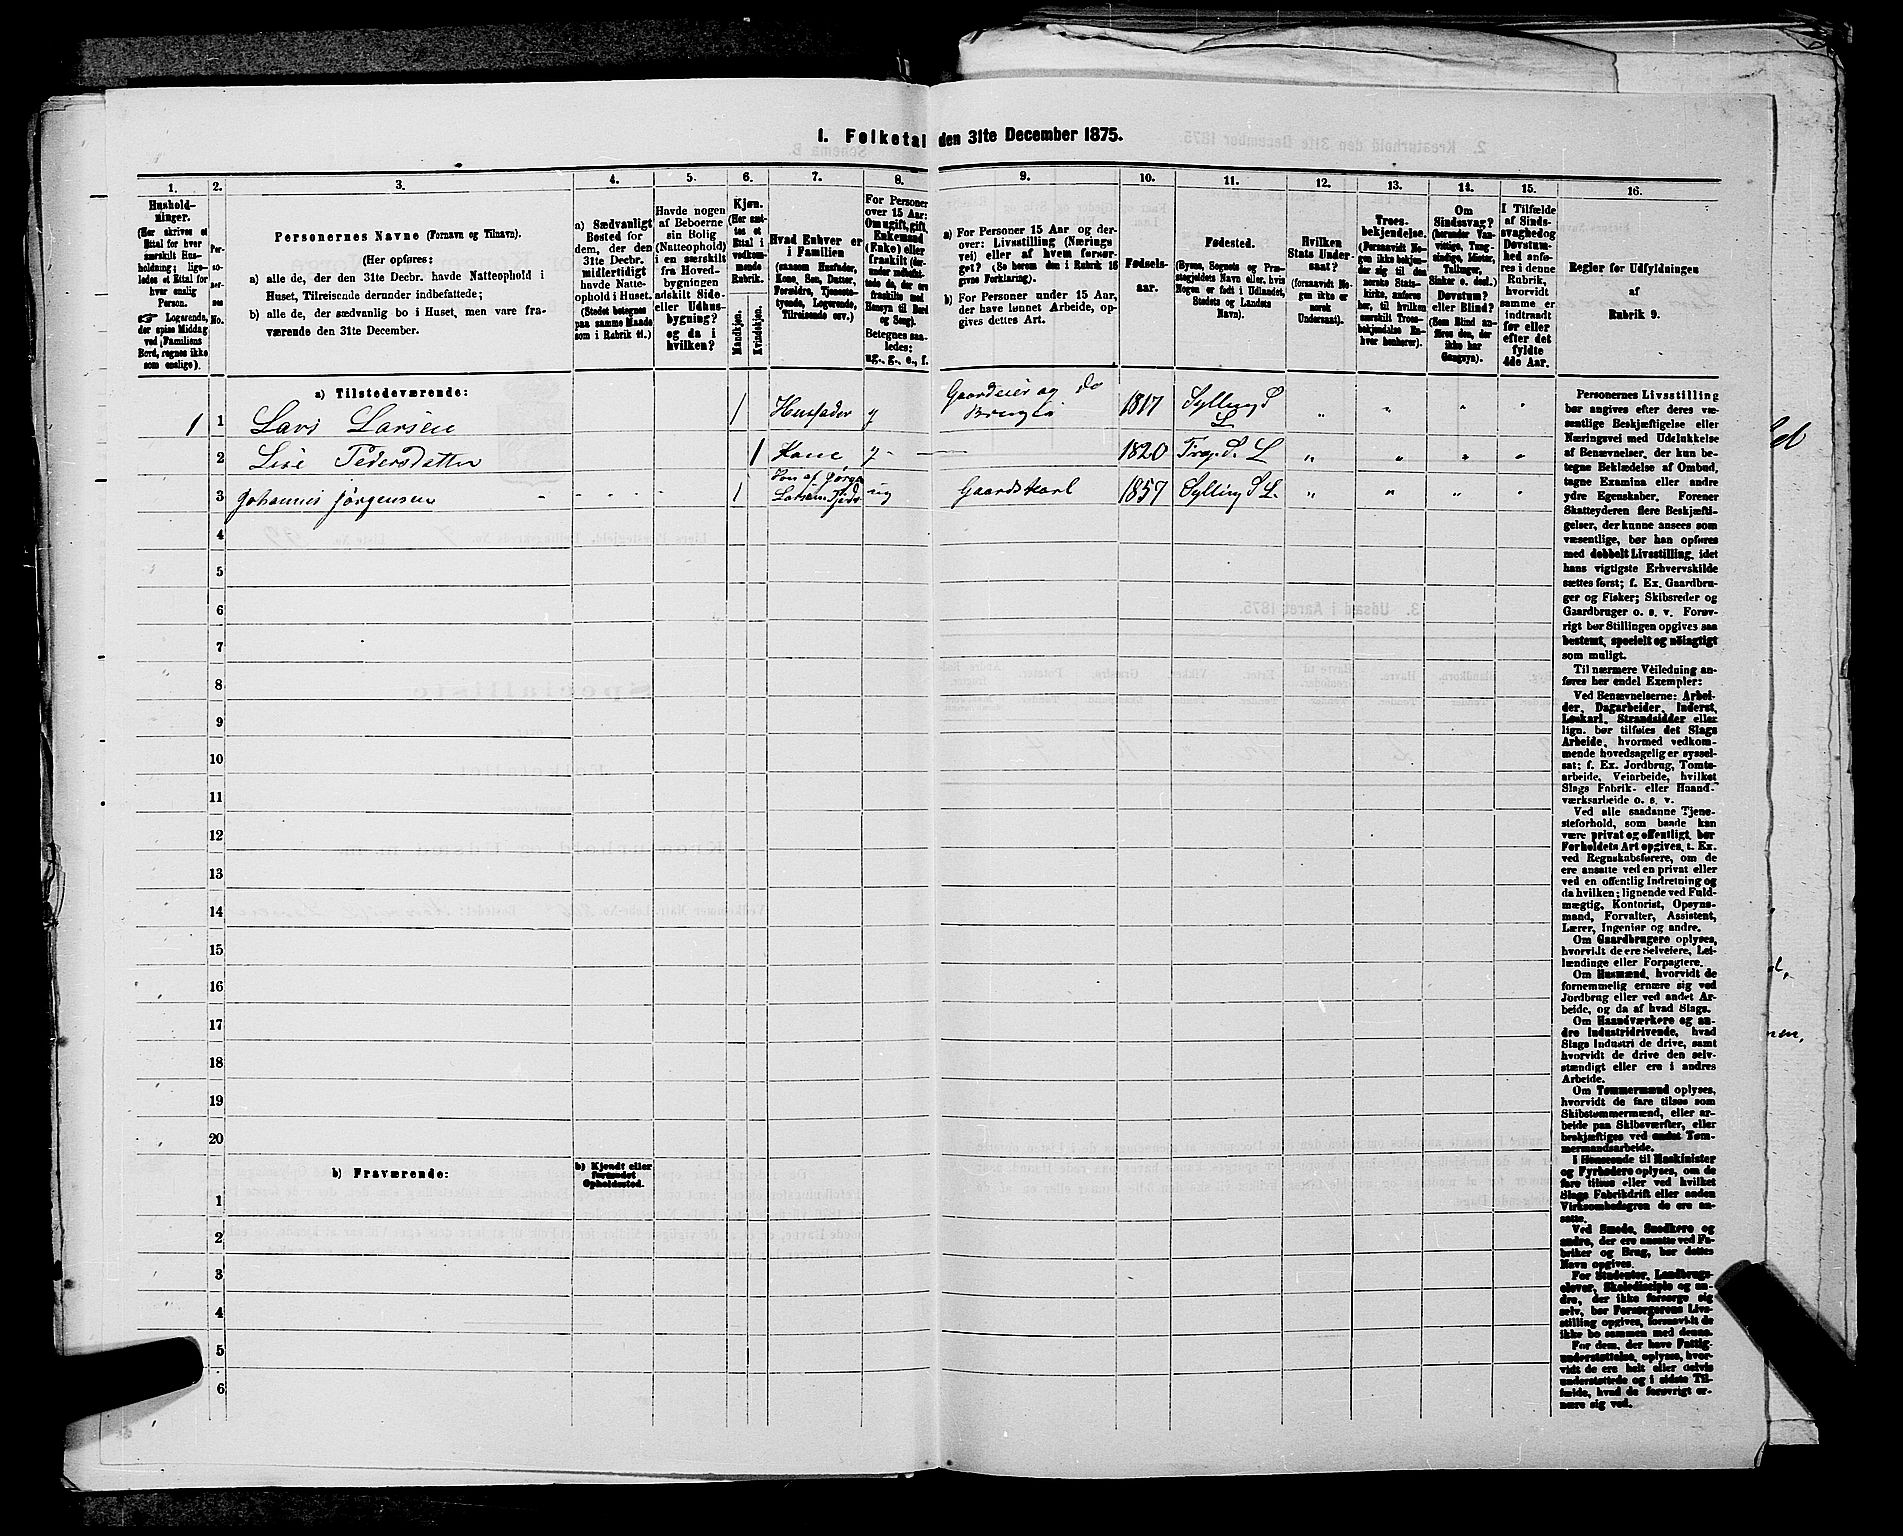 I. Folketal den 31te December 1875.
1. 2. 3. 4. 5. 6. 7. 8. 9. 10. 11. 12. 13. 14. 15. 16.
Hushold-
ninger.
(Her skrives et
Ettal for hver
særskilt Hus-
holdning; lige-
ledes et Ettal for
hver enslig
Person.
☞ Logerende,
der spise Middag
ved Familiens
Bord, regnes ikke
som enslige).
Per-
so-
ner-
nes
No.
Personernes Navne (Fornavn og Tilnavn).
(Her opføres:
a) alle de, der den 31te Decbr. havde Natteophold i
Huset, Tilreisende derunder indbefattede;
b) alle de, der sædvanlig bo i Huset, men vare fra-
værende den 31te December.
a) Sædvanligt
Bosted for
dem, der den
31te Decbr.
midlertidigt
havde Natte-
ophold i Huset.
(Stedet betegnes
paa samme Maade
som i Rubrik 11.)
Havde nogen
af Beboerne
sin Bolig
(Natteophold)
i en særskilt
fra Hoved-
bygningen
adskilt Side-
eller Udhus-
bygning?
og da i
hvilken?
Kjøn.
(Her sæt-
tes et
Ettal i
vedkom-
mende
Rubrik.
Mandkjøn.
Kvindekjøn.
Hvad Enhver er
i Familien
(saasom Husfader,
Kone, Søn, Datter,
Forældre, Tjeneste-
tyende, Logerende,
Tilreisende osv.)
For Personer
over 15 Aar:
Om ugift, gift,
Enkemand
(Enke) eller
fraskilt (der-
under indbefat-
tede de, der ere
fraskilte med
Hensyn til Bord
og Seng).
Betegnes saa-
ledes:
ug., g., e., f.
a) For Personer 15 Aar og der-
over: Livsstilling (Nærings
vei) eller af hvem forsør-
get? (Se herom den i Rubrik 16
givne Forklaring).
b) For Personer under 15 Aar,
der have lønnet Arbeide, op-
gives dettes Art.
Fødsels-
aar.
Fødested.
(Byens, Sognets og Præ-
stegjeldets Navn eller, hvis
Nogen er født i Udlandet,
Stedets og Landets
Navn).
Hvilken
Stats Under-
saat?
(forsaavidt No-
gen ikke er
norsk
Undersaat).
Troes-
bekjendelse.
(Forsaavidt No-
gen ikke bekjen-
der sig til den
norske Stats-
kirke, anføres
her, til hvilken
særskilt Troes-
bekjendelse En-
hver henhører).
Om
Sindssvag?
(herunder Van-
vittige, Tung-
sindige, Idioter,
Tullinger,
Sinker o. desl.)
Døvstum?
eller Blind?
(Som Blind an-
føres den, der
ikke har
Gangsyn).
I Tilfælde
af Sinds-
svaghed og
Døvstum-
hed anfø-
res i denne
Rubrik,
hvorvidt
samme er
indtraadt
før eller
efter det
fyldte
4de Aar.
Regler for Udfyldningen
af
Rubrik 9.
a) Tilstedeværende:
1 1 Lars Larsen 1 Husfader g Gaardeier og do Bruger 1817 Sylling S L „ „ „ „
2 Lise Pedersdatter 1 Kone g - 1820 S. L „ „ „ „
3 Johannes Jørgensen 1 Søn af Larsen ug Gaardskarl 1857 Sylling S L. „ „ „ „
4
5
6
7
8
9
10
11
12
13
14
15
16
17
18
19
20
b) Fraværende:
b) Kjendt eller
formodet
Opholdssted.
1
2
3
4
5
6
Personernes Livsstilling
bør angives efter deres væ-
sentlige Beskjæftigelse eller
Næringsvei med Udelukkelse
af Benævnelser, der kun be-
tegne Beklædelse af Ombud,
tagne Examina eller andre
ydre Egenskaber. Forener
Skatteyderen flere Beskjæfti-
gelser, der kunne ansees som
væsentlige, bør han opføres
med dobbelt Livsstilling, idet
hans vigtigste Erhvervskilde
sættes først; f. Ex. Gaardbru-
ger og Fisker; Skibsreder og
Gaardbruger o. s. v. Forøv-
rigt bør Stillingen opgives saa
bestemt, specielt og nøiagtigt
som muligt.
Til nærmere Veiledning an-
føres her endel Exempler:
Ved Benævnelserne: Arbei-
der, Dagarbeider, Inderst,
Løskarl, Strandsidder eller
lign. bør tilføies det Slags
Arbeide, hvormed vedkom-
mende hovedsagelig er syssel-
sat; f. Ex. Jordbrug, Tomte-
arbeide, Veiarbeide, hvilket
Slags Fabrik- eller Haand-
værksarbeide o. s. v.
Ved alle saadanne Tjene-
steforhold, som baade kan
være privat og offentligt, bør
Forholdets Art opgives, t. Ex.
ved Regnskabsførere, om de
ere ansatte ved en privat eller
ved en offentlig Indretning og
da hvilken; lignende ved Fuld-
mægtig, Kontorist, Opsyns-
mand, Forvalter, Assistent,
Lærer, Ingeniør og andre.
Om Gaardbrugere oplyses,
hvorvidt de ere Selveiere, Lei-
lændinge eller Forpagtere.
Om Husmænd, hvorvidt de
fornemmelig ernære sig ved
Jordbrug eller ved andet Ar-
beide, og da af hvad Slags.
Om Haandværkere og an-
dre Industridrivende, hvad
Slags Industri de drive, samt
hvorvidt de drive den selv-
stændigt eller ere i andres
Arbeide.
Om Tømmermænd oplyses,
hvorvidt de fare tilsøs som
Skibstømmermænd, eller ar-
beide paa Skibsværfter, eller
beskjæftiges ved andet Tøm-
mermandsarbeide.
I Henseende til Maskinister
og Fyrbødere oplyses, om de
fare tilsøs eller ved hvilket
Slags Fabrikdrift eller anden
Virksomhedsgren de ere an-
satte.
Ved Smede, Snedkere og
andre, der ere ansatte ved Fa-
briker og Brug, bør dettes
Navn opgives.
For Studenter, Landbrugs-
elever, Skoledisciple og an-
dre, der ikke forsørge sig
selv, bør Forsørgerens Livs-
stilling opgives, forsaavidt de
ikke bo sammen med denne.
For dem, der have Fattig-
understøttelse, oplyses, hvor-
vidt de ere helt eller delvis
understøttede og i sidste Til-
fælde, hvad de forøvrigt er-
nære sig ved.